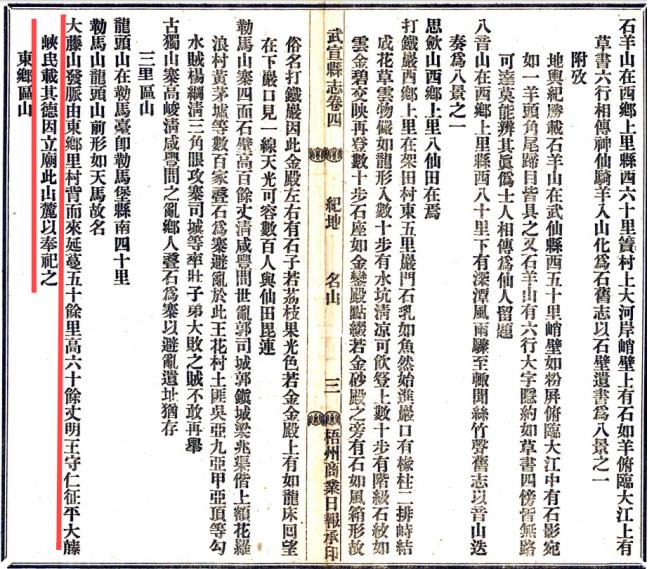 石羊山在西鄉上里縣西六十里簣村上大河岸峭壁上有石如羊俯臨大江上有
草書六行相傳神仙騎羊入山化爲石舊志以石壁遺書爲八景之一
附攷
地輿紀勝載石羊山在武仙縣西五十里峭壁如粉屏俯臨大江中有石影宛
如一羊頭角尾蹄目皆具之又石羊山有六行大字隱約如草書四傍皆無路
可達莫能辨其眞僞士人相傳爲仙人留題
八音山在西鄉上里縣西八十里下有深潭風雨驟至輙聞絲竹聲舊志以音山迭
奏爲八景之一
思歛山西鄉上里八仙田在焉
打鐵巖西鄉上里在架田村東五里巖門石乳如魚然始進巖口有椽柱二排峙結
成花草雲物儼如龍形入數十步有水坑清凉可飲登上數十步有階級石紋如
雲金碧交映再登數十步石座如金鑾殿點綴若金砂殿之旁有石如風箱形故
武宣縣志卷四
紀地
名山
三
梧州商業日報承印
俗名打鐵巖因此金殿左右有石子若荔枝果光色若金金殿上有如龍床囘望
在下巖口見一線天光可容數百人與仙田毘連
勒馬山寨四面石壁高百餘丈清咸豐間世亂郭司城郭鎭城梁兆渠偕上額花羅
浪村黃茅墟等數百家叠石爲寨避亂於此王花村土匪吳亞九亞甲亞頂等勾
水賊楊綱淸三角眼攻寨司城等率壯子弟大敗之賊不敢再舉
古獨山寨高峻淸咸豐間之亂鄉人叠石爲寨以避亂遺址猶存
三里區山
龍頭山在勒馬臺卽勒馬堡縣南四十里
勒馬山龍頭山前形如天馬故名
大藤山發脈由東鄉里村背而來延蔓五十餘里高六十餘丈明王守仁征平大藤
峽民載其德因立廟此山麓以奉祀之
東鄉區山